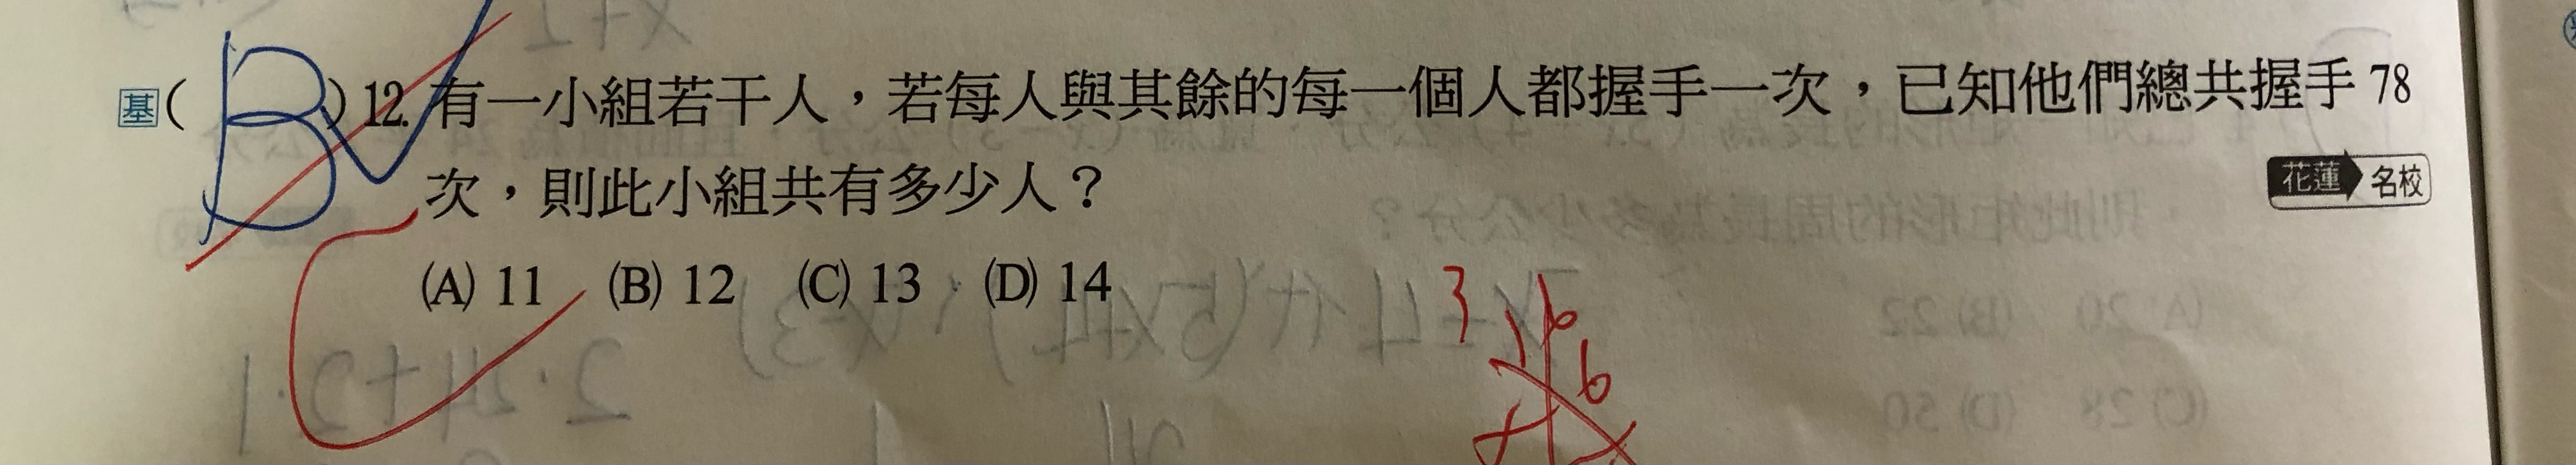 基( B )12. 有一小組若干人，若每人與其餘的每一個人都握手一次，已知他們總共握手 78
次，則此小組共有多少人？
花蓮 名校
(A) 11 (B) 12 (C) 13 (D) 14